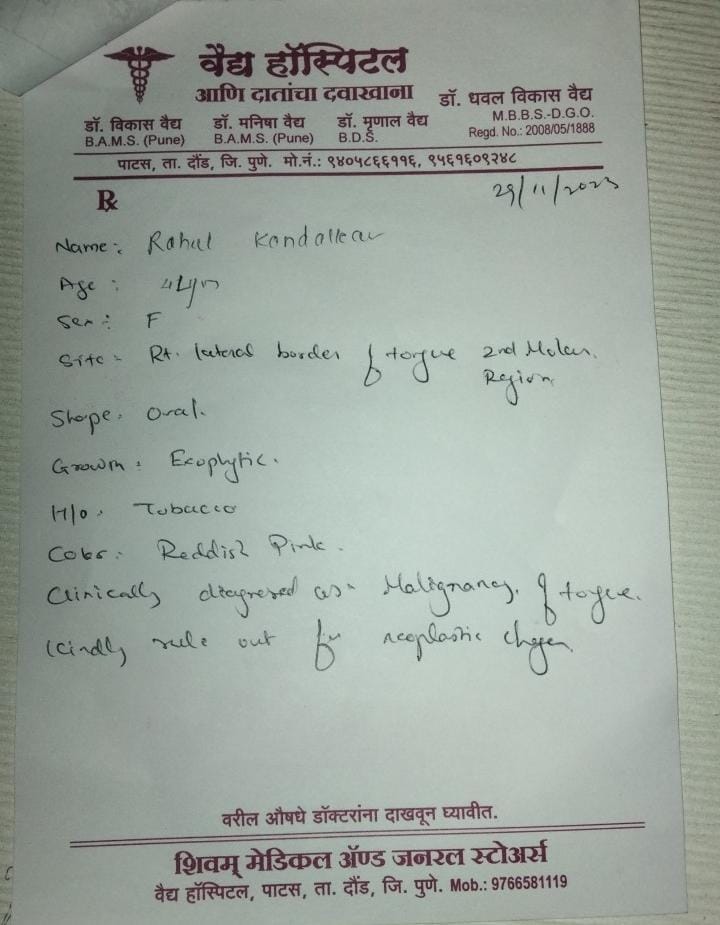 वैद्य हॉस्पिटल
आणि दातांचा दवाखाना
डॉ. विकास वैद्य
B.A.M.S. (Pune)
डॉ. मनिषा वैद्य
B.A.M.S. (Pune)
डॉ. मृणाल वैद्य
B.D.S.
डॉ. धवल विकास वैद्य
M.B.B.S.-D.G.O.
Regd. No.: 2008/05/1888
पाटस, ता. दौंड, जि. पुणे. मो.नं.: ९४०५८६६११६, ९५६१६०९२४८
℞
29/11/2023
Name: Rahul
Age :
Sex : F
Site - Rt. lateral border of tongue 2nd Molar
Region
Shape. Oval.
Growth : Exophytic.
H/o. Tobacco
Color. Reddish Pink.
Clinically diagnosed as - Malignancy of tongue.
Kindly rule out for neoplastic
वरील औषधे डॉक्टरांना दाखवून घ्यावीत.
शिवम् मेडिकल ॲण्ड जनरल स्टोअर्स
वैद्य हॉस्पिटल, पाटस, ता. दौंड, जि. पुणे. Mob.: 9766581119